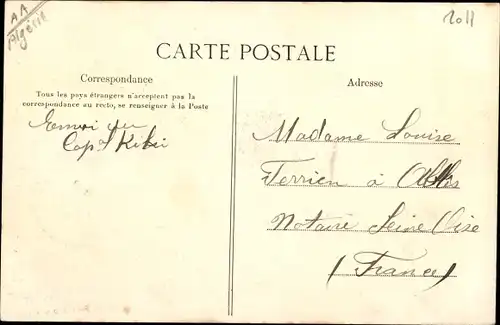 AA
Algérie
2011
CARTE POSTALE
Correspondance
Tous les pays étrangers n'acceptent pas la
correspondance au recto, se renseigner à la Poste
Adresse
Envoi du
Cap.
Madame Louise
Terrien à
Notaire Seine Oise
(France)